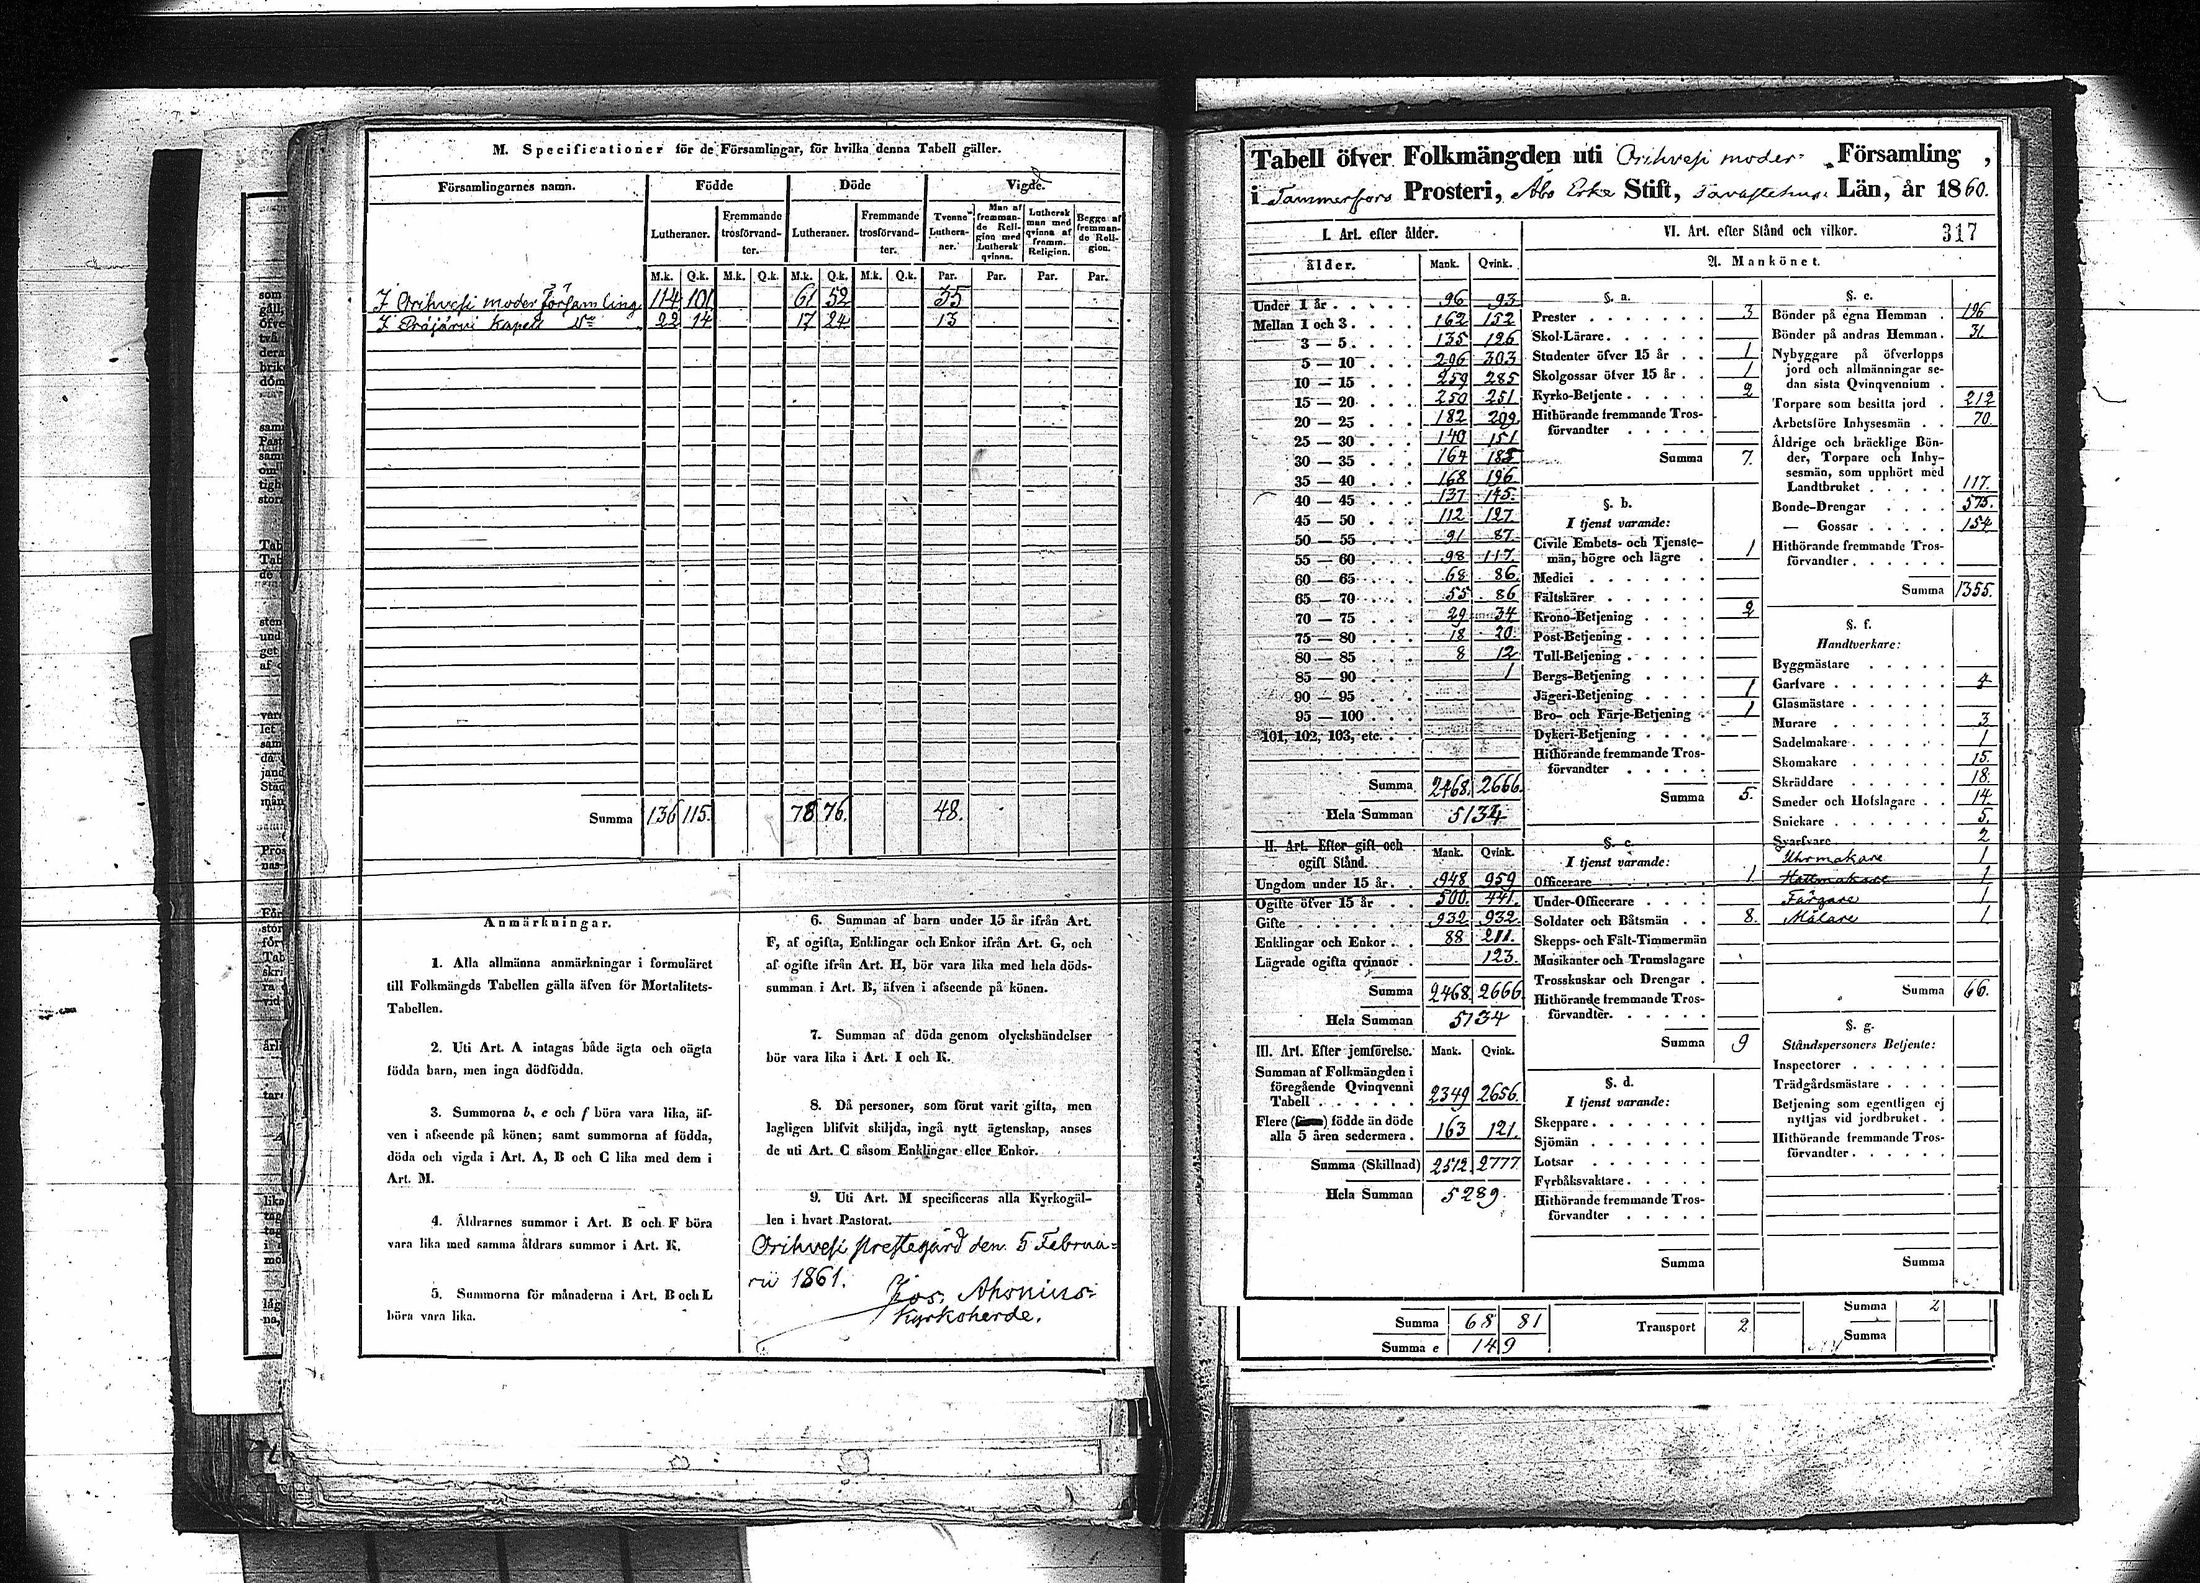 M. Specificationer för de Församlingar, för hvilka denna Tabell gäller.
Församlingarnes namn. Födde Döde Vigde.
Lutheraner. Fremmande trosförvandter. Lutheraner. Fremmande trosförvandter. Tvenne Lutheraner. Man af fremmande Religion med Luthersk qvinna. Luthersk man med qvinna af fremm. Religion. Begge af fremmande Religion.
M.k. Q.k. M.k. Q.k. M.k. Q.k. M.k. Q.k. Par. Par. Par. Par.
I Orihvesi moder församling 114 101 61 52 35
I Eräjärvi Kapell 22 14 17 24 13
Summa 136 115. 78 76. 48.
Anmärkningar.
1. Alla allmänna anmärkningar i formuläret
till Folkmängds Tabellen gälla äfven för Mortalitets-
Tabellen.
2. Uti Art. A intagas både ägta och oägta
födda barn, men inga dödfödda.
3. Summorna b, e och f böra vara lika, äf-
ven i afseende på könen; samt summorna af födda,
döda och vigda i Art. A, B och C lika med dem i
Art. M.
4. Åldrarnes summor i Art. B och F böra
vara lika med samma åldrars summor i Art. K.
5. Summorna för månaderna i Art. B och L
böra vara lika.
6. Summan af barn under 15 år ifrån Art.
F, af ogifta, Enklingar och Enkor ifrån Art. G, och
af ogifte ifrån Art. H, bör vara lika med hela döds-
summan i Art. B, äfven i afseende på könen.
7. Summan af döda genom olyckshändelser
bör vara lika i Art. I och K.
8. Då personer, som förut varit gifta, men
lagligen blifvit skiljda, ingå nytt ägtenskap, anses
de uti Art. C såsom Enklingar eller Enkor.
9. Uti Art. M specificeras alla Kyrkogäl-
len i hvart Pastorat.
Orihvesi prestegård den 5 Februa-
rii 1861.
Jos. Ahonius
Kyrkoherde.
Tabell öfver Folkmängden uti Orihvesi moder- Församling,
i Tammerfors Prosteri, Åbo Erke Stift, Tavastehus Län, år 1860.
317
I. Art. efter ålder.
ålder. Mank. Qvink.
Under 1 år 96 93
Mellan 1 och 3 162 152
3 — 5 135 126
5 — 10 296 303
10 — 15 259 285
15 — 20 250 251
20 — 25 182 209
25 — 30 140 151
30 — 35 164 185
35 — 40 168 196
40 — 45 137 145
45 — 50 112 127
50 — 55 91 87
55 — 60 98 117
60 — 65 68 86
65 — 70 55 86
70 — 75 29 34
75 — 80 18 20
80 — 85 8 12
85 — 90 1
90 — 95
95 — 100
101, 102, 103, etc.
Summa 2468. 2666.
Hela Summan 5134
II. Art. Efter gift och ogift Stånd. Mank. Qvink.
Ungdom under 15 år 948 959
Ogifte öfver 15 år 500 441
Gifte 932 932
Enklingar och Enkor 88 211
Lägrade ogifta qvinnor 123.
Summa 2468. 2666
Hela Summan 5134
III. Art. Efter jemförelse. Mank. Qvink.
Summan af Folkmängden i
föregående Qvinqvenni
Tabell 2349 2656.
Flere födde än döde
alla 5 åren sedermera. 163 121.
Summa (Skillnad) 2512. 2777
Hela Summan 5289.
VI. Art. efter Stånd och vilkor.
A. Mankönet.
§. a.
Prester 3
Skol-Lärare
Studenter öfver 15 år 1
Skolgossar öfver 15 år 1
Kyrko-Betjente 2
Hithörande fremmande Tros-
förvandter
Summa 7.
§. b.
I tjenst varande:
Civile Embets- och Tjenste-
män, högre och lägre 1
Medici
Fältskärer
Krono-Betjening 2
Post-Betjening
Tull-Betjening
Bergs-Betjening
Jägeri-Betjening 1
Bro- och Färje-Betjening 1
Dykeri-Betjening
Hithörande fremmande Tros-
förvandter
Summa 5.
§. c.
I tjenst varande:
Officerare 1.
Under-Officerare
Soldater och Båtsmän 8.
Skepps- och Fält-Timmermän
Musikanter och Trumslagare
Trosskuskar och Drengar
Hithörande fremmande Tros-
förvandter.
Summa 9
§. d.
I tjenst varande:
Skeppare
Sjömän
Lotsar
Fyrbåksvaktare
Hithörande fremmande Tros-
förvandter
Summa
§. e.
Bönder på egna Hemman 196
Bönder på andras Hemman. 31.
Nybyggare på öfverlopps
jord och allmänningar se-
dan sista Qvinqvennium
Torpare som besitta jord 212
Arbetsföre Inhysesmän 70.
Åldrige och bräcklige Bön-
der, Torpare och Inhy-
sesmän, som upphört med
Landtbruket 117.
Bonde-Drengar 575.
— Gossar 154
Hithörande fremmande Tros-
förvandter
Summa 1355.
§. f.
Handtverkare:
Byggmästare
Garfvare 4
Glasmästare
Murare 3
Sadelmakare 1
Skomakare 15.
Skräddare 18.
Smeder och Hofslagare 14.
Snickare 5.
Svarfvare 2
Uhrmakare 1
Hattmakare 1
Färgare 1
Målare 1
Summa 66.
§. g.
Ståndspersoners Betjente:
Inspectorer
Trädgårdsmästare
Betjening som egentligen ej
nyttjas vid jordbruket
Hithörande fremmande Tros-
förvandter
Summa
Summa 68 81 Transport 2 Summa 2
Summa e 149 Summa